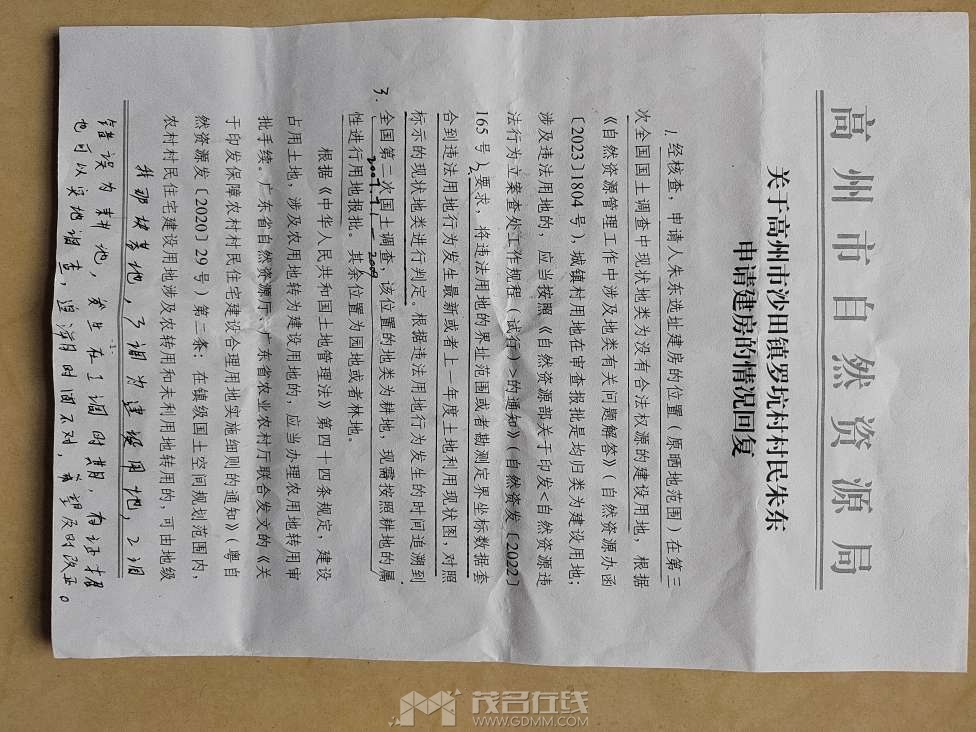 高州市自然资源局
关于高州市沙田镇罗坑村村民朱东
申请建房的情况回复
1.经核查，申请人朱东选址建房的位置（原晒地范围）在第三
次全国国土调查中现状地类为没有合法权源的建设用地，根据
《自然资源管理工作中涉及地类有关问题解答》（自然资源办函
〔2023〕1804号），城镇村用地在审查报批是均归类为建设用地；
涉及违法用地的，应当按照《自然资源部关于印发<自然资源违
法行为立案查处工作规程（试行）>的通知》（自然资发〔2022〕
165号）2.要求，将违法用地的界址范围或者勘测定界坐标数据套
合到违法用地行为发生最新或者上一年度土地利用现状图，对照
标示的现状地类进行判定。根据违法用地行为发生的时间追溯到
3.全国第二次国土调查，该位置的地类为耕地，现需按照耕地的属
2007.7.1－2009
性进行用地报批。其余位置为园地或者林地。
根据《中华人民共和国土地管理法》第四十四条规定，建设
占用土地，涉及农用地转为建设用地的，应当办理农用地转用审
批手续。广东省自然资源厅、广东省农业农村厅联合发文的《关
于印发保障农村村民住宅建设合理用地实施细则的通知》（粤自
然资源发〔2020〕29号）第二条：在镇级国土空间规划范围内，
农村村民住宅建设用地涉及农转用和未利用地转用的，可由地级
-1-
我那块基地，3调为建设用地，2调
错误为耕地，发生在1调时期，有证据
也可以实地调查，追溯时间不对，希望及时改正。
茂名在线
WWW.GDMM.COM